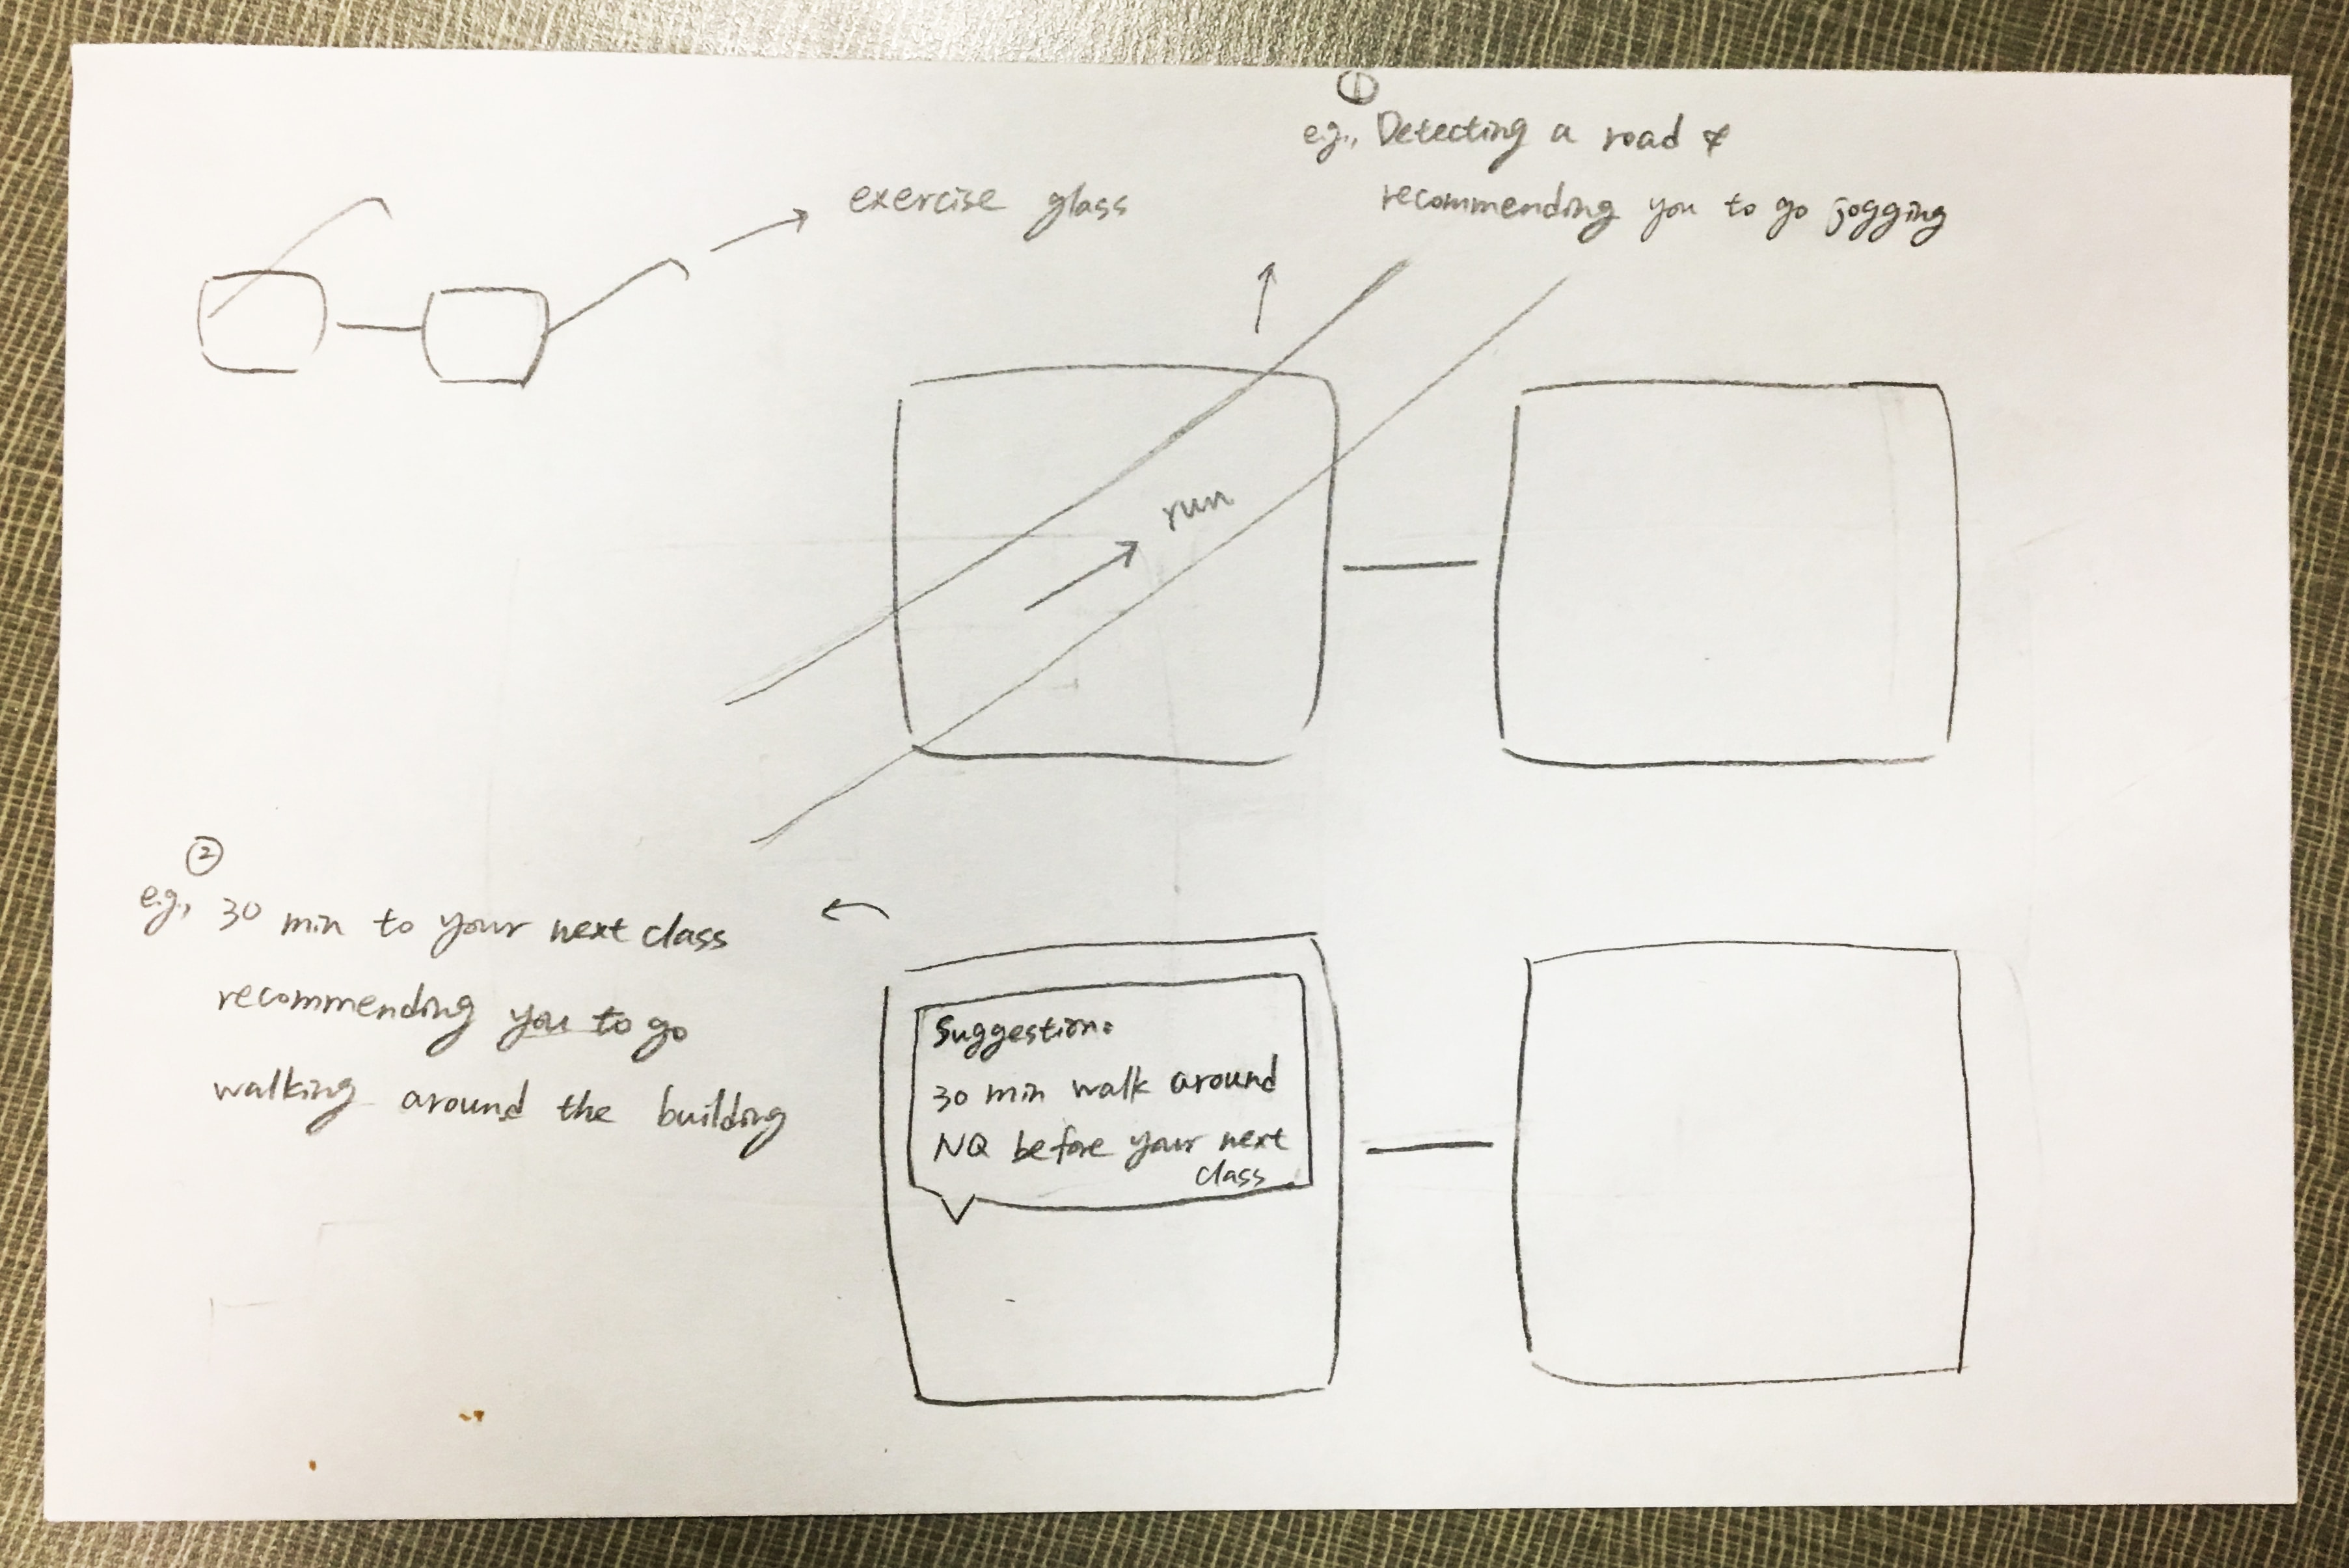 exercise glass
①
e.g., Detecting a road &
recommending you to go jogging
run
②
e.g., 30 min to your next class
recommending you to go
walking around the building
Suggestion:
30 min walk around
NQ before your next
class